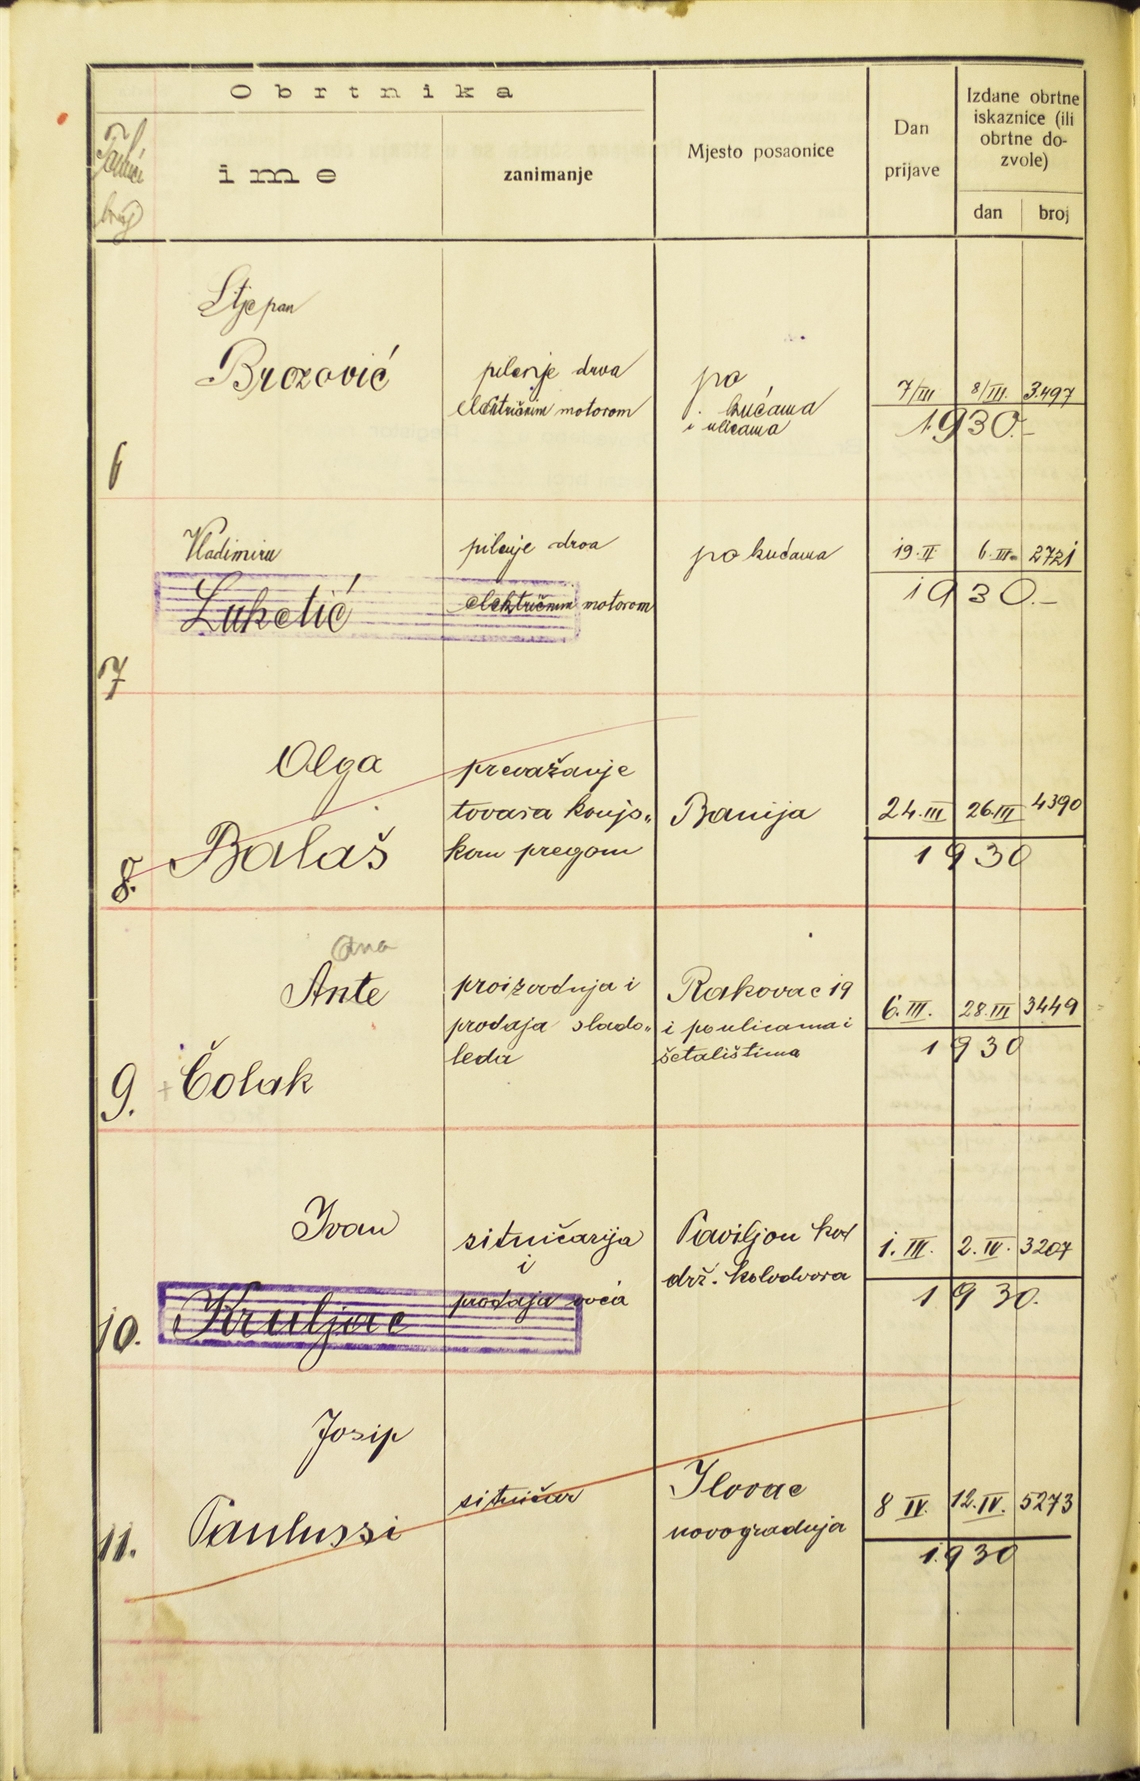 Obrtnika
ime
zanimanje
Mjesto posaonice
Dan
prijave
Izdane obrtne
iskaznice (ili
obrtne do-
zvole)
dan
broj
Tekući
broj
6
Stjepan
Brozović
pilenje drva
električnim motorom
po
kućama
i ulicama
7/III
8/III.
3497
1930.-
7
Vladimira
Luketić
pilenje drva
električnim motorom
po kućama
19.II
6.III.
2721
1930.-
8.
Olga
Balaš
prevažanje
tovara konjs„
kom pregom
Banija
24.III
26.III
4390
1930
9.
Ana
Ante
Čolak
proizvodnja i
prodaja slado„
leda
Rakovac 19
i po ulicama i
šetalištima
6.III.
28.III
3449
1930
10.
Ivan
Kruljac
sitničarija
i
prodaja voća
Paviljon kod
drž. kolodvora
1.III.
2.IV.
3207
1930.
11.
Josip
Paulussi
sitničar
Ilovac
novogradnja
8 IV.
12.IV.
5273
1930